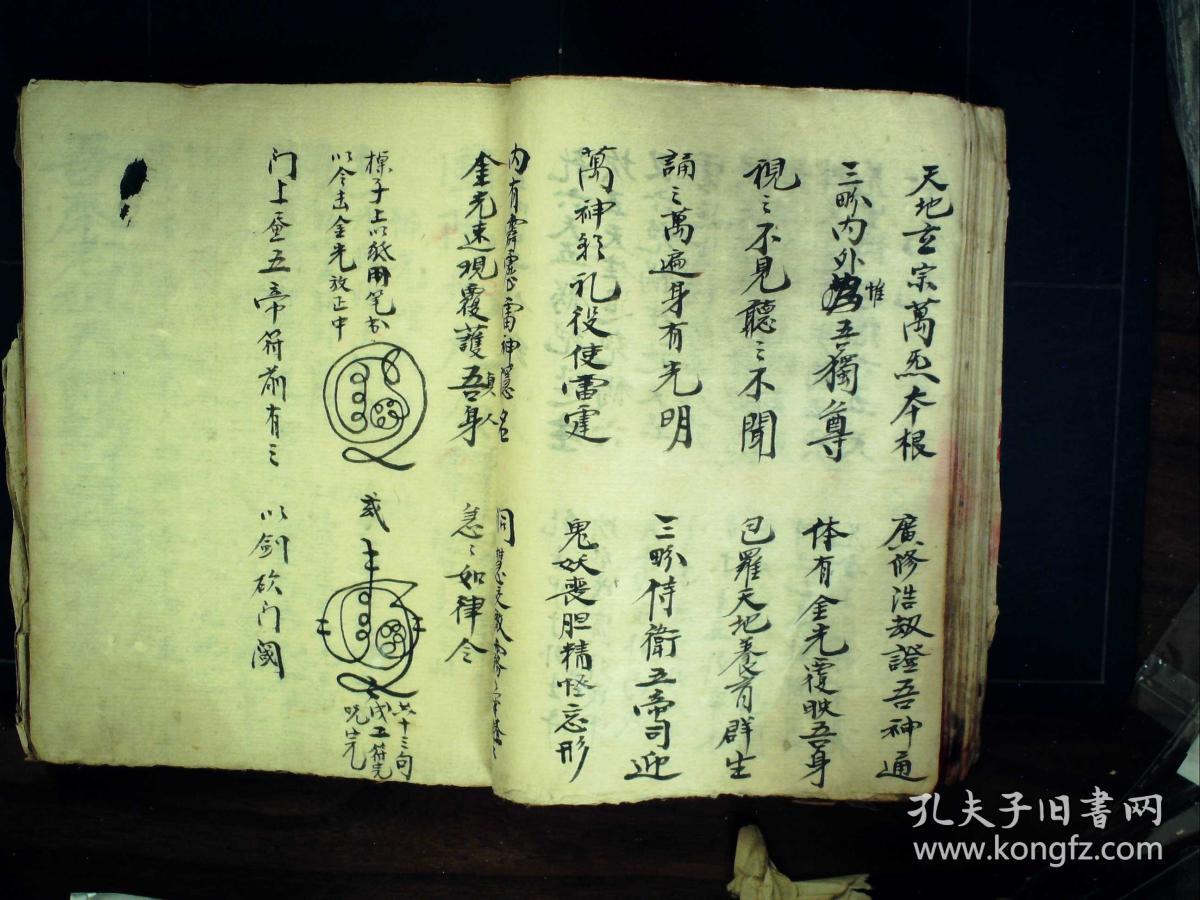 天地玄宗萬炁本根
廣修浩劫證吾神通
三界内外惟吾獨尊
体有金光覆映吾身
視之不見聽之不聞
包羅天地養育群生
誦之萬遍身有光明
三界侍衛五帝司迎
萬神朝礼役使雷霆
鬼妖喪胆精怪忘形
内有霹靂雷神隱名
洞慧交徹
金光速現覆護吾身
真人
急急如律令
棹子上以
用笔出
以令击金光放正中
或
共十三句
咒完
门上
五帝符前有三
以剑砍门
孔夫子旧書网
www.kongfz.com